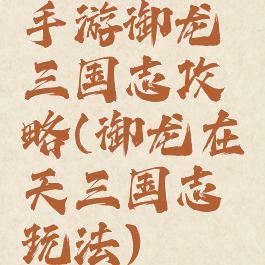 手游御龙
三国志攻
略(御龙在
天三国志
玩法)